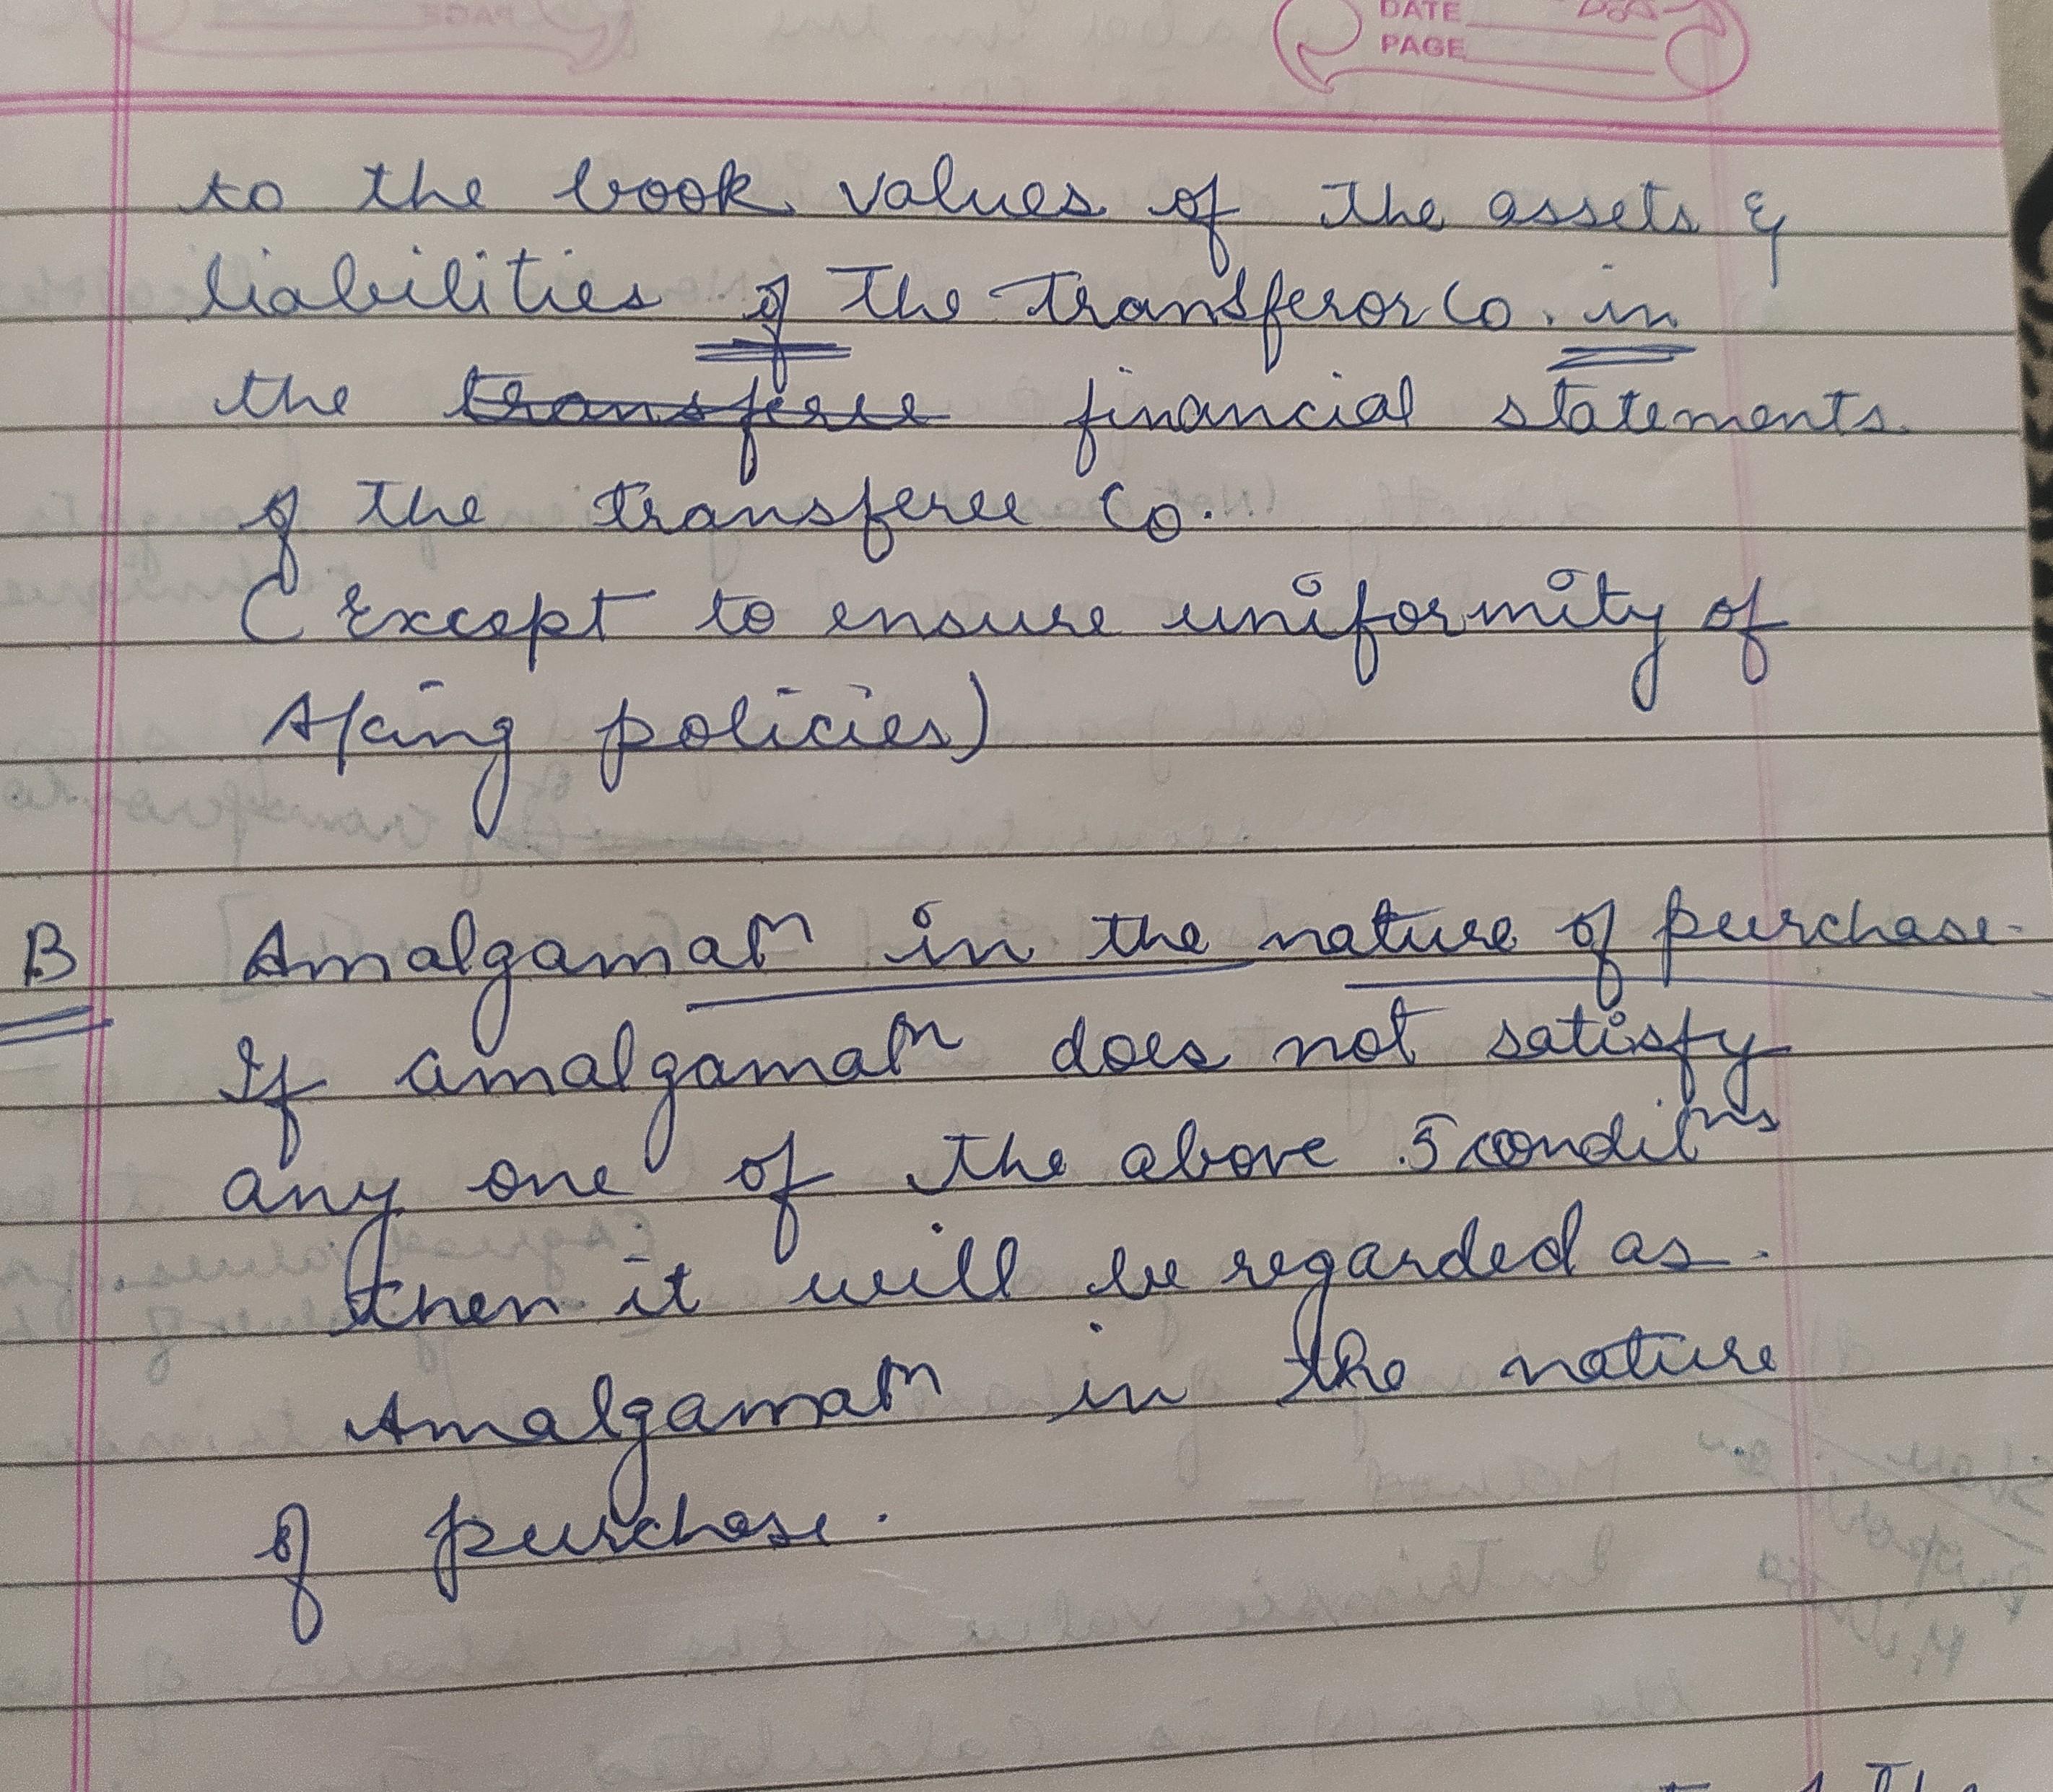 DATE
PAGE
to the book values of the assets &
liabilities of the transferor Co. in
the transferee financial statements
of the transferee Co.
(Except to ensure uniformity of
A/cing policies)
B Amalgamatⁿ in the nature of purchase.
If amalgamatⁿ does not satisfy
any one of the above 5 conditⁿˢ
then it will be regarded as
Amalgamatⁿ in the nature
of purchase.